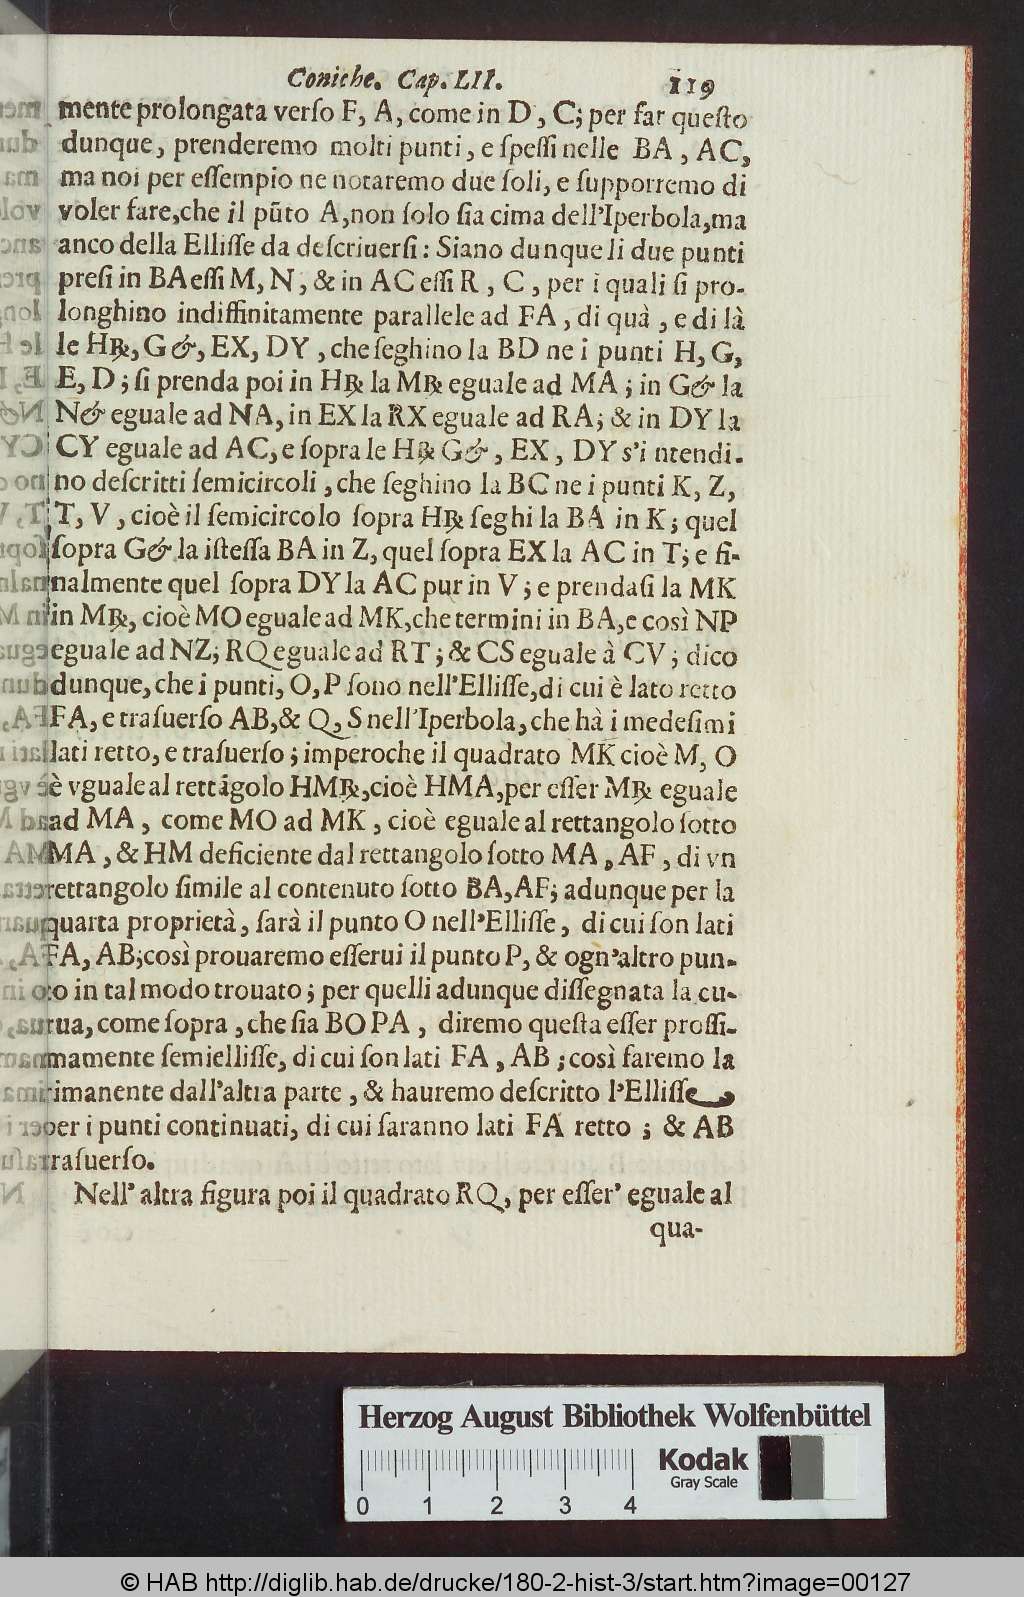 Coniche. Cap. LII. 119
mente prolongata verſo F, A, come in D, C; per far queſto
dunque, prenderemo molti punti, e ſpeſſi nelle BA, AC,
ma noi per eſſempio ne notaremo due ſoli, e ſupporremo di
voler fare, che il pũto A, non ſolo ſia cima dell'Iperbola, ma
anco della Elliſſe da deſcriuerſi: Siano dunque li due punti
preſi in BA eſſi M, N, & in AC eſſi R, C, per i quali ſi pro-
longhino indiffinitamente parallele ad FA, di quà, e di là
le H℞, G&, EX, DY, che ſeghino la BD ne i punti H, G,
E, D; ſi prenda poi in H℞ la M℞ eguale ad MA; in G& la
N& eguale ad NA, in EX la RX eguale ad RA; & in DY la
CY eguale ad AC, e ſopra le H℞ G&, EX, DY s'i ntendi-
no deſcritti ſemicircoli, che ſeghino la BC ne i punti K, Z,
T, V, cioè il ſemicircolo ſopra H℞ ſeghi la BA in K; quel
ſopra G& la iſteſſa BA in Z, quel ſopra EX la AC in T; e fi-
nalmente quel ſopra DY la AC pur in V; e prendaſi la MK
in M℞, cioè MO eguale ad MK, che termini in BA, e così NP
eguale ad NZ; RQ eguale ad RT; & CS eguale à CV; dico
dunque, che i punti, O, P ſono nell'Elliſſe, di cui è lato retto
FA, e traſuerſo AB, & Q, S nell'Iperbola, che hà i medeſimi
lati retto, e traſuerſo; imperoche il quadrato MK cioè M, O
è vguale al rettãgolo HM℞, cioè HMA, per eſſer M℞ eguale
ad MA, come MO ad MK, cioè eguale al rettangolo ſotto
MA, & HM deficiente dal rettangolo ſotto MA, AF, di vn
rettangolo ſimile al contenuto ſotto BA, AF; adunque per la
quarta proprietà, ſarà il punto O nell'Elliſſe, di cui ſon lati
FA, AB; così prouaremo eſſerui il punto P, & ogn'altro pun-
to in tal modo trouato; per quelli adunque diſſegnata la cu-
rua, come ſopra, che ſia BOPA, diremo queſta eſſer proſſi-
mamente ſemielliſſe, di cui ſon lati FA, AB; così faremo la
rimanente dall'altra parte, & hauremo deſcritto l'Elliſſe,
per i punti continuati, di cui ſaranno lati FA retto; & AB
traſuerſo.
Nell' altra figura poi il quadrato RQ, per eſſer' eguale al
qua-
Herzog August Bibliothek Wolfenbüttel
Kodak
Gray Scale
0 1 2 3 4
© HAB http://diglib.hab.de/drucke/180-2-hist-3/start.htm?image=00127